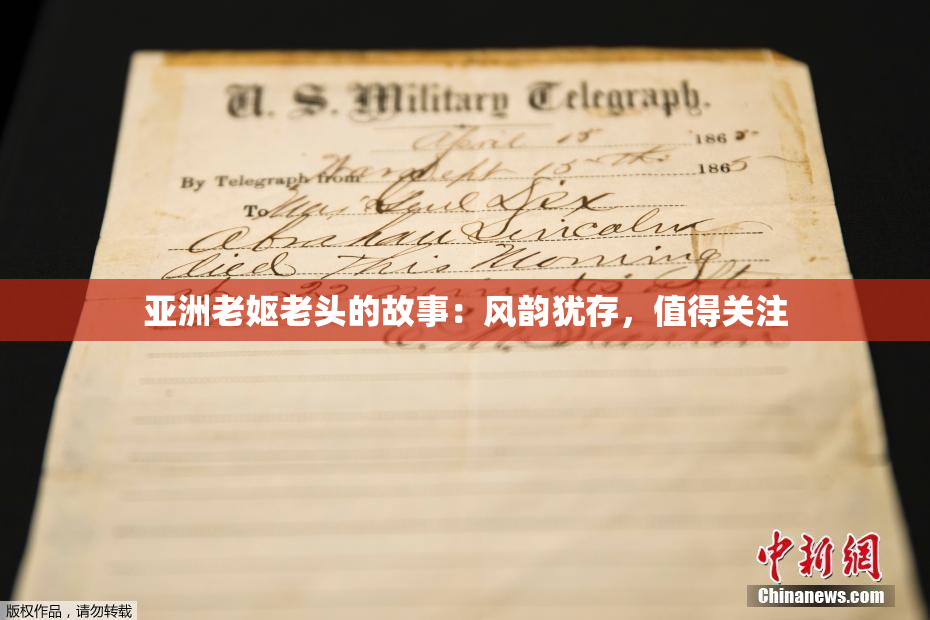 U. S. Military Telegraph.
April 15 1865
By Telegraph from War Dept 15th 1865
To Maj Genl Dix
Abraham Lincoln
died This Morning
at 22 minutes after
亚洲老妪老头的故事：风韵犹存，值得关注
E. M. Stanton
中新網
Chinanews.com
版权作品，请勿转载